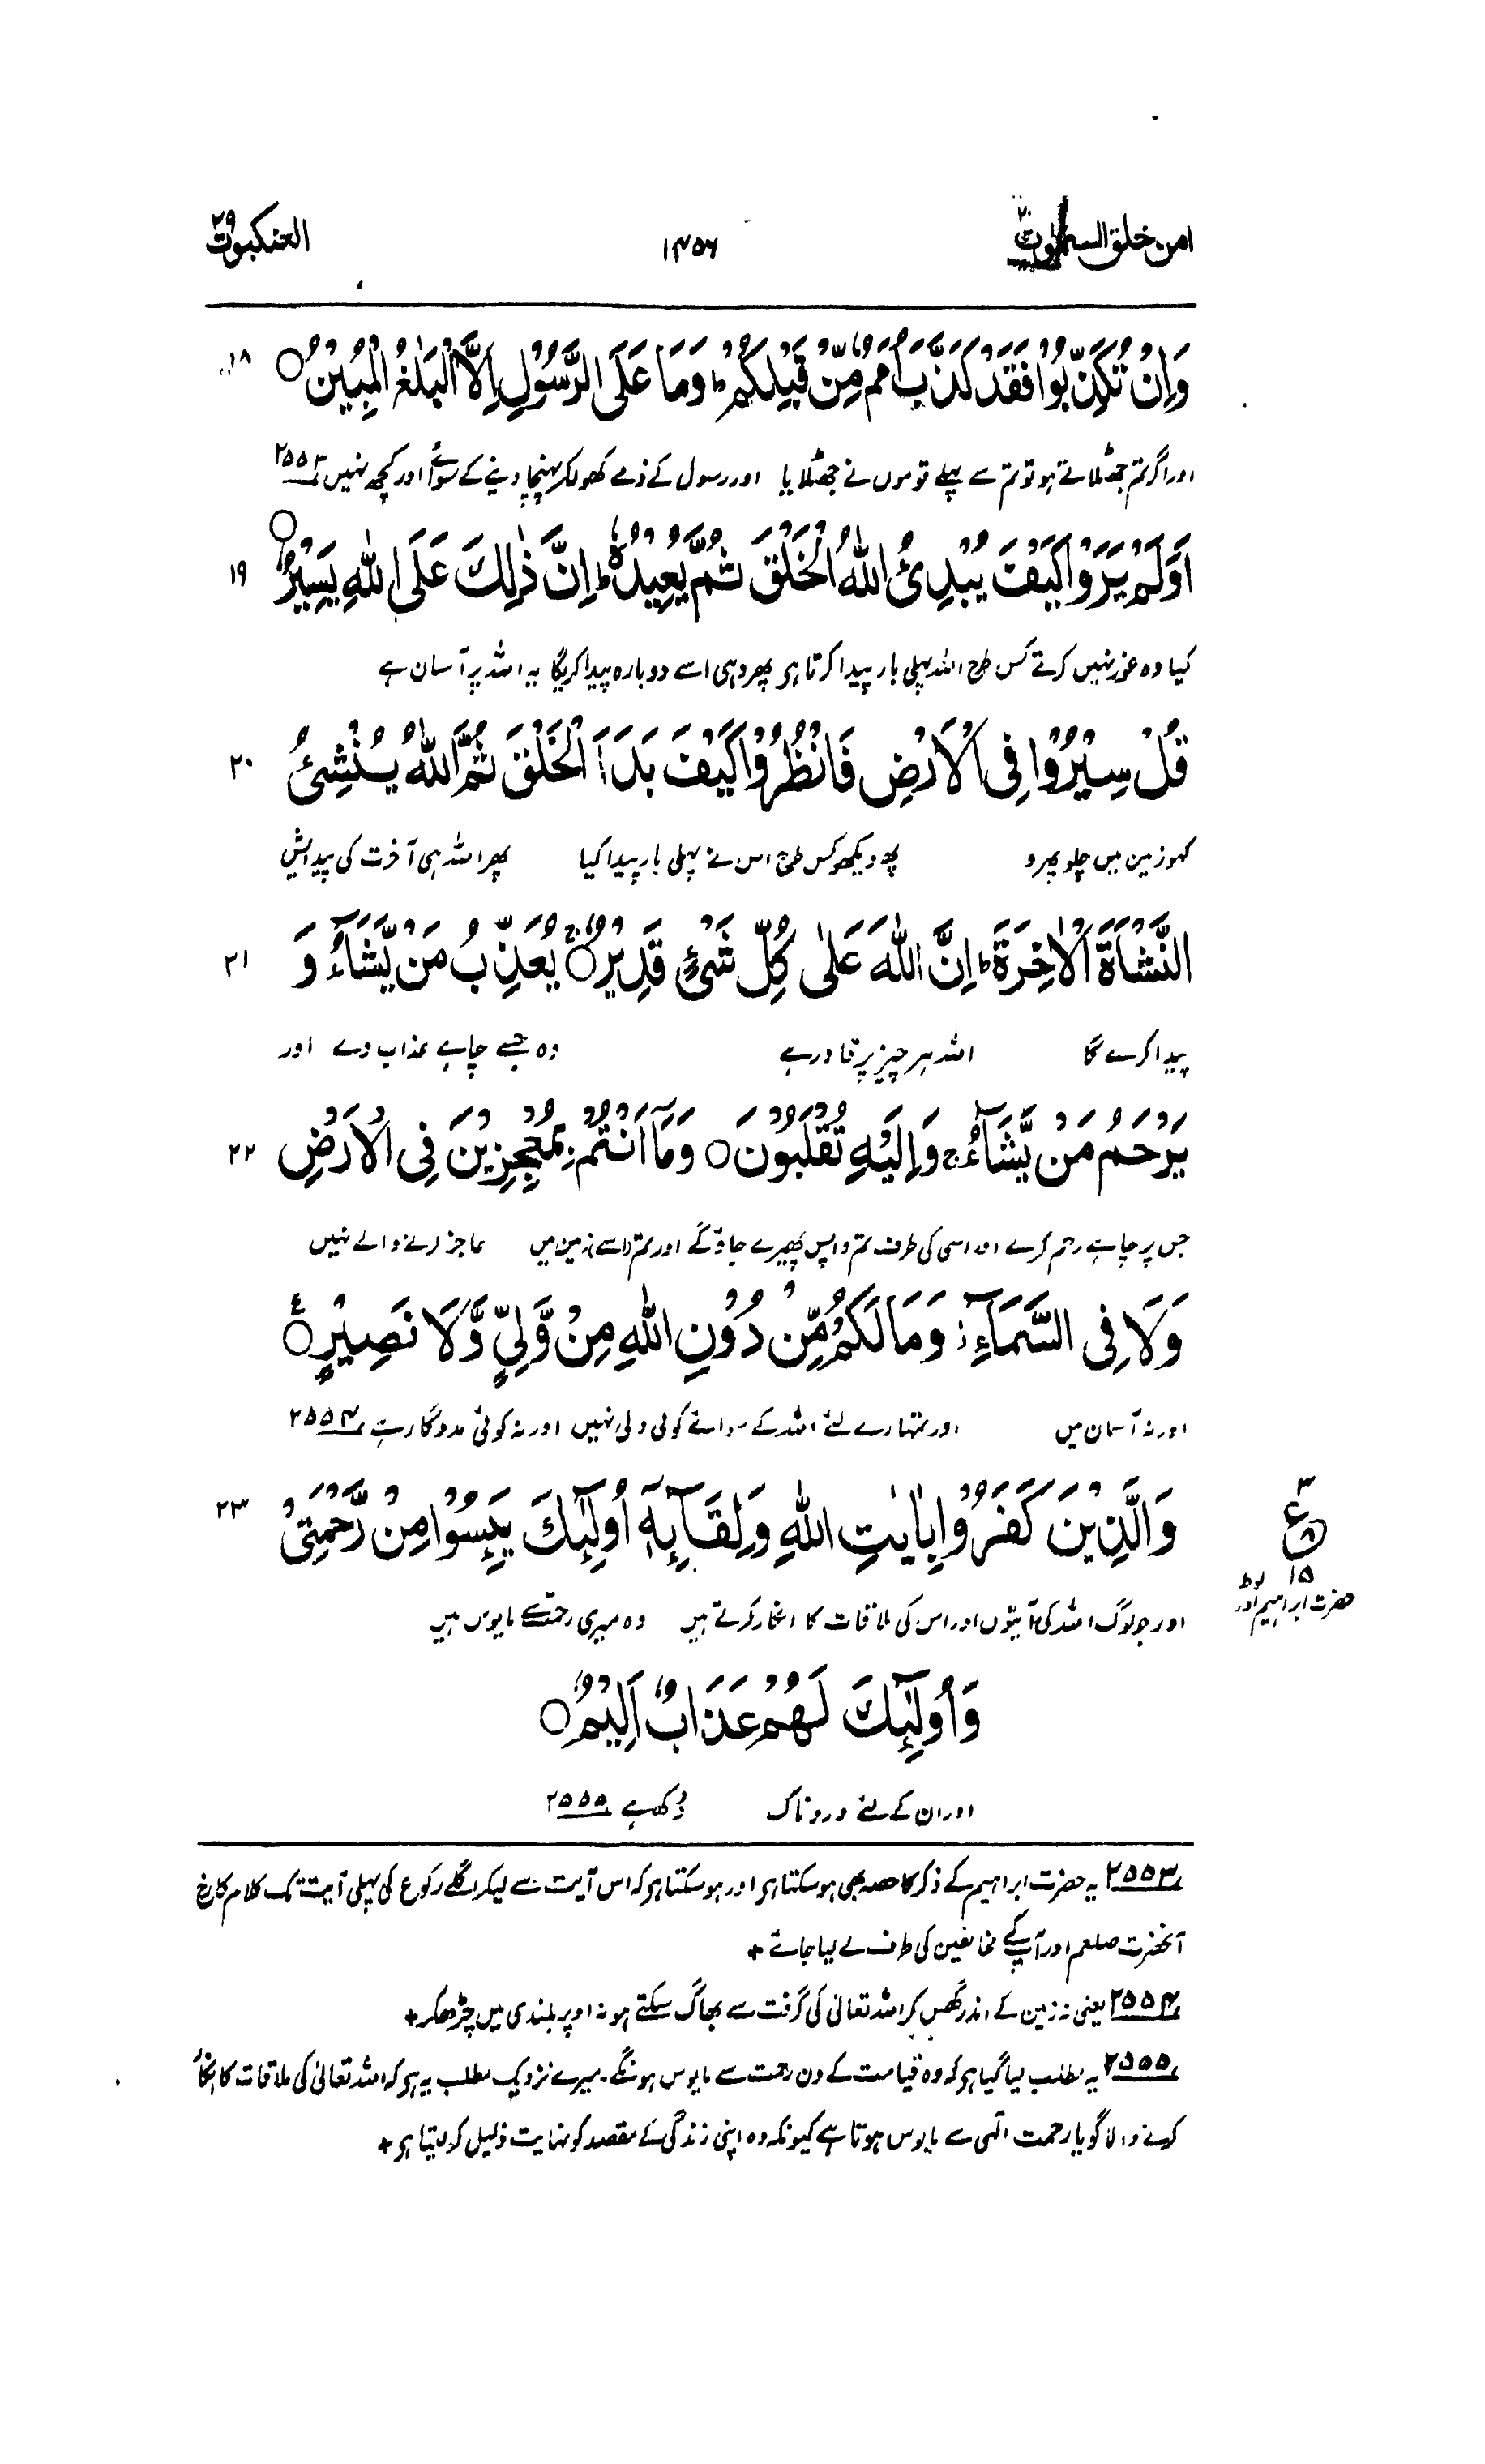 امن خلق السمٰوٰت ۲۰
۱۴۵۶
العنکبوت ۲۹
وَاِنْ تُكَذِّبُوْا فَقَدْ كَذَّبَ اُمَمٌ مِّنْ قَبْلِكُمْ ؕ وَمَا عَلَى الرَّسُوْلِ اِلَّا الْبَلٰغُ الْمُبِيْنُ ○ ۱۸
اور اگر تم جھٹلاتے ہو تو تم سے پہلے قوموں نے جھٹلایا اور رسول کے ذمے کھولکر پہنچا دینے کے سوائے اور کچھ نہیں ۲۵۵۳
اَوَلَمْ يَرَوْا كَيْفَ يُبْدِئُ اللّٰهُ الْخَلْقَ ثُمَّ يُعِيْدُهٗ ؕ اِنَّ ذٰلِكَ عَلَى اللّٰهِ يَسِيْرٌ ○ ۱۹
کیا وہ غور نہیں کرتے کس طرح اللہ پہلی بار پیدا کرتا ہر پھر وہی اسے دوبارہ پیدا کریگا یہ اللہ پر آسان ہے
قُلْ سِيْرُوْا فِى الْاَرْضِ فَانْظُرُوْا كَيْفَ بَدَاَ الْخَلْقَ ثُمَّ اللّٰهُ يُنْشِئُ ۲۰
کہو زمین میں چلو پھرو پھر دیکھو کس طرح اس نے پہلی بار پیدا کیا پھر اللہ ہی آخرت کی پیدائش
النَّشْاَةَ الْاٰخِرَةَ ؕ اِنَّ اللّٰهَ عَلٰى كُلِّ شَىْءٍ قَدِيْرٌ ○ يُعَذِّبُ مَنْ يَّشَآءُ وَ ۲۱
پیدا کرے گا اللہ ہر چیز پر قادر ہے وہ جسے چاہے عذاب دے اور
يَرْحَمُ مَنْ يَّشَآءُ ۚ وَاِلَيْهِ تُقْلَبُوْنَ ○ وَمَآ اَنْتُمْ بِمُعْجِزِيْنَ فِى الْاَرْضِ ۲۲
جس پر چاہے رحم کرے اور اسی کی طرف تم واپس پھیرے جاؤگے اور تم (اسے) زمین میں عاجز کرنے والے نہیں
وَلَا فِى السَّمَآءِ ۚ وَمَا لَكُمْ مِّنْ دُوْنِ اللّٰهِ مِنْ وَّلِىٍّ وَّلَا نَصِيْرٍ ○ ع
اور نہ آسمان میں اور تمہارے لئے اللہ کے سوائے کوئی ولی نہیں اور نہ کوئی مددگار ہے ۲۵۵۴
وَالَّذِيْنَ كَفَرُوْا بِاٰيٰتِ اللّٰهِ وَلِقَآئِهٖٓ اُولٰٓئِكَ يَئِسُوْا مِنْ رَّحْمَتِىْ ۲۳
ع
۱۵
حضرت ابراہیم اور لوط
اور جو لوگ اللہ کی آیتوں اور اس کی ملاقات کا انکار کرتے ہیں وہ میری رحمت سے مایوس ہیں
وَاُولٰٓئِكَ لَهُمْ عَذَابٌ اَلِيْمٌ ○
اور ان کے لئے دردناک دُکھ ہے ۲۵۵۵
۲۵۵۳ یہ حضرت ابراہیم کے ذکر کا حصہ بھی ہو سکتا ہر اور ہو سکتا ہر کہ اس آیت سے لیکر اگلے رکوع کی پہلی آیت تک کلام کا رخ
آنحضرت صلعم اور آپ کے مخالفین کی طرف لے لیا جائے +
۲۵۵۴ یعنی نہ زمین کے اندر گھس کر اللہ تعالیٰ کی گرفت سے بھاگ سکتے ہو نہ اوپر بلندی میں چڑھکر +
۲۵۵۵ یہ مطلب لیا گیا ہر کہ وہ قیامت کے دن رحمت سے مایوس ہونگے۔ میرے نزدیک مطلب یہ ہر کہ اللہ تعالیٰ کی ملاقات کا انکار
کرنے والا گویا رحمت الٰہی سے مایوس ہوتا ہے کیونکہ وہ اپنی زندگی کے مقصد کو نہایت ذلیل کر لیتا ہر +